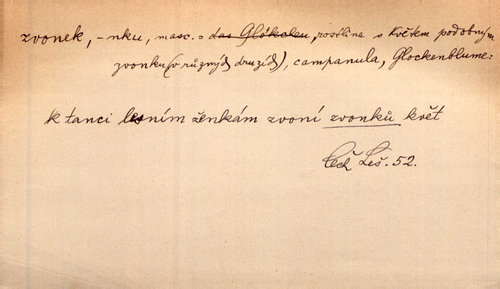 zvonek, -nku, masc. = das Glöckchen, rostlina s květem podobným
zvonku (v různých druzích), campanula, Glockenblume:
K tanci lesním ženkám zvoní zvonků květ
Čech Leš. 52.